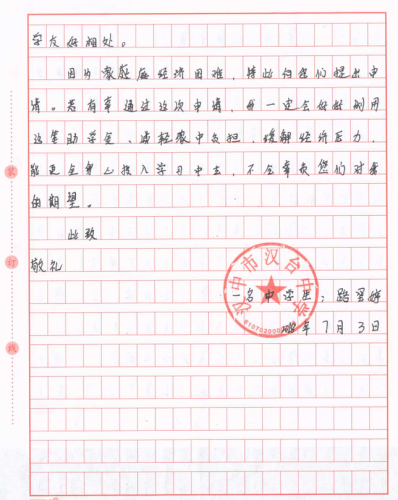 学友好相处。
因为家庭庭经济困难，特此向您们提出申
请。若有幸通过这次申请，我一定会好好利用
这笔助学金，减轻家中负担，缓解经济压力，
能更全身心投入学习中去，不会辜负您们对我
的期望。
此致
敬礼
汉中市汉台中学
一名中学生：路
年7月3日
装
订
线